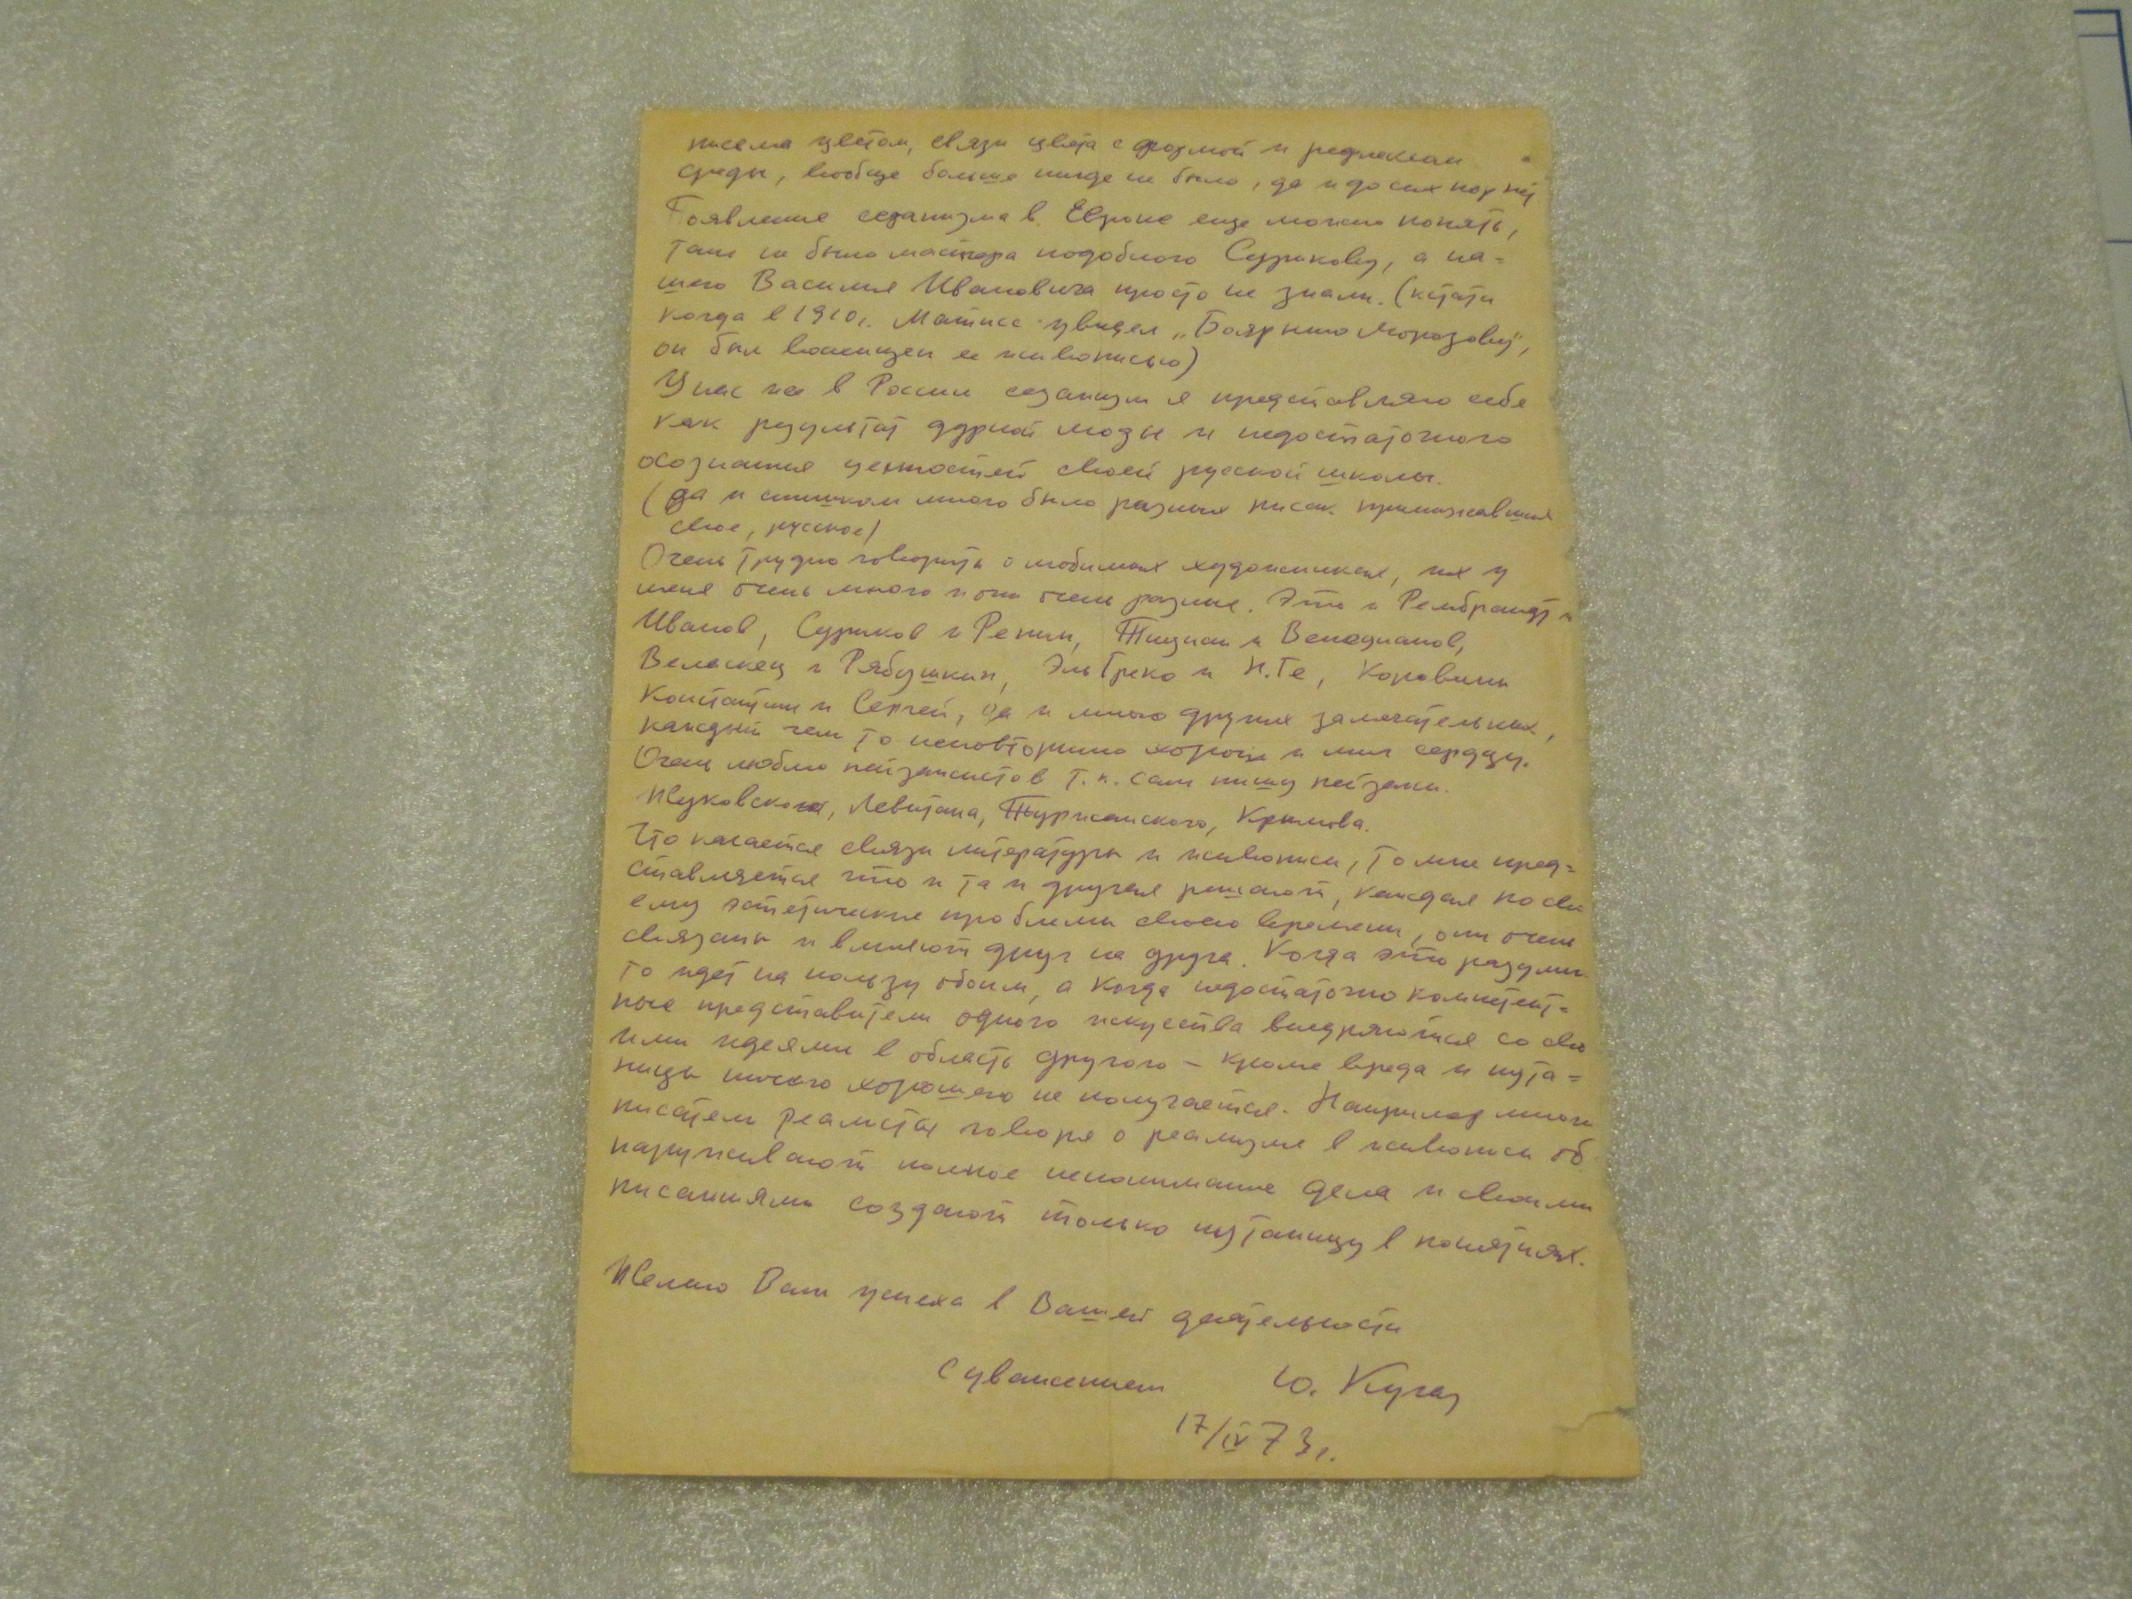 письма цветом, связи цвета с формой и рефлексам
среды, вообще больше нигде не было, да и до сих пор нет
Появление сезанизма в Европе еще можно понять,
там не было мастера подобного Сурикову, а на=
шего Василия Ивановича просто не знали. (кстати
когда в 1910г. Матисс увидел „Боярыню Морозову",
он был восхищен ее живописью)
У нас же в России сезанизм я представляю себе
как результат дурной моды и недостаточного
осознания ценностей своей русской школы.
(да и слишком много было разных писак принижавших
свое, русское)
Очень трудно говорить о любимых художниках, их у
меня очень много и они очень разные. Это и Рембрандт и
Иванов, Суриков и Репин, Тициан и Венецианов,
Веласкец и Рябушкин, Эль Греко и Н.Ге, Коровины
Константин и Сергей, да и много других замечательных,
каждый чем то неповторимо хорош и мил сердцу.
Очень люблю пейзажистов т.к. сам пишу пейзажи.
Жуковского, Левитана, Туржанского, Крымова.
Что касается связи литературы и живописи, то мне пред=
ставляется что и та и другая решают, каждая по сво
ему эстетические проблемы своего времени, они очень
связаны и влияют друг на друга. Когда это разумно
то идет на пользу обоим, а когда недостаточно компетент=
ные представители одного искусства внедряются со сво
ими идеями в область другого – кроме вреда и пута=
ницы ничего хорошего не получается. Например многие
писатели реалисты говоря о реализме в живописи об
наруживают полное непонимание дела и своими
писаниями создают только путаницу в понятиях.
Желаю Вам успеха в Вашей деятельности
С уважением Ю. Кугач
17/IV 73г.